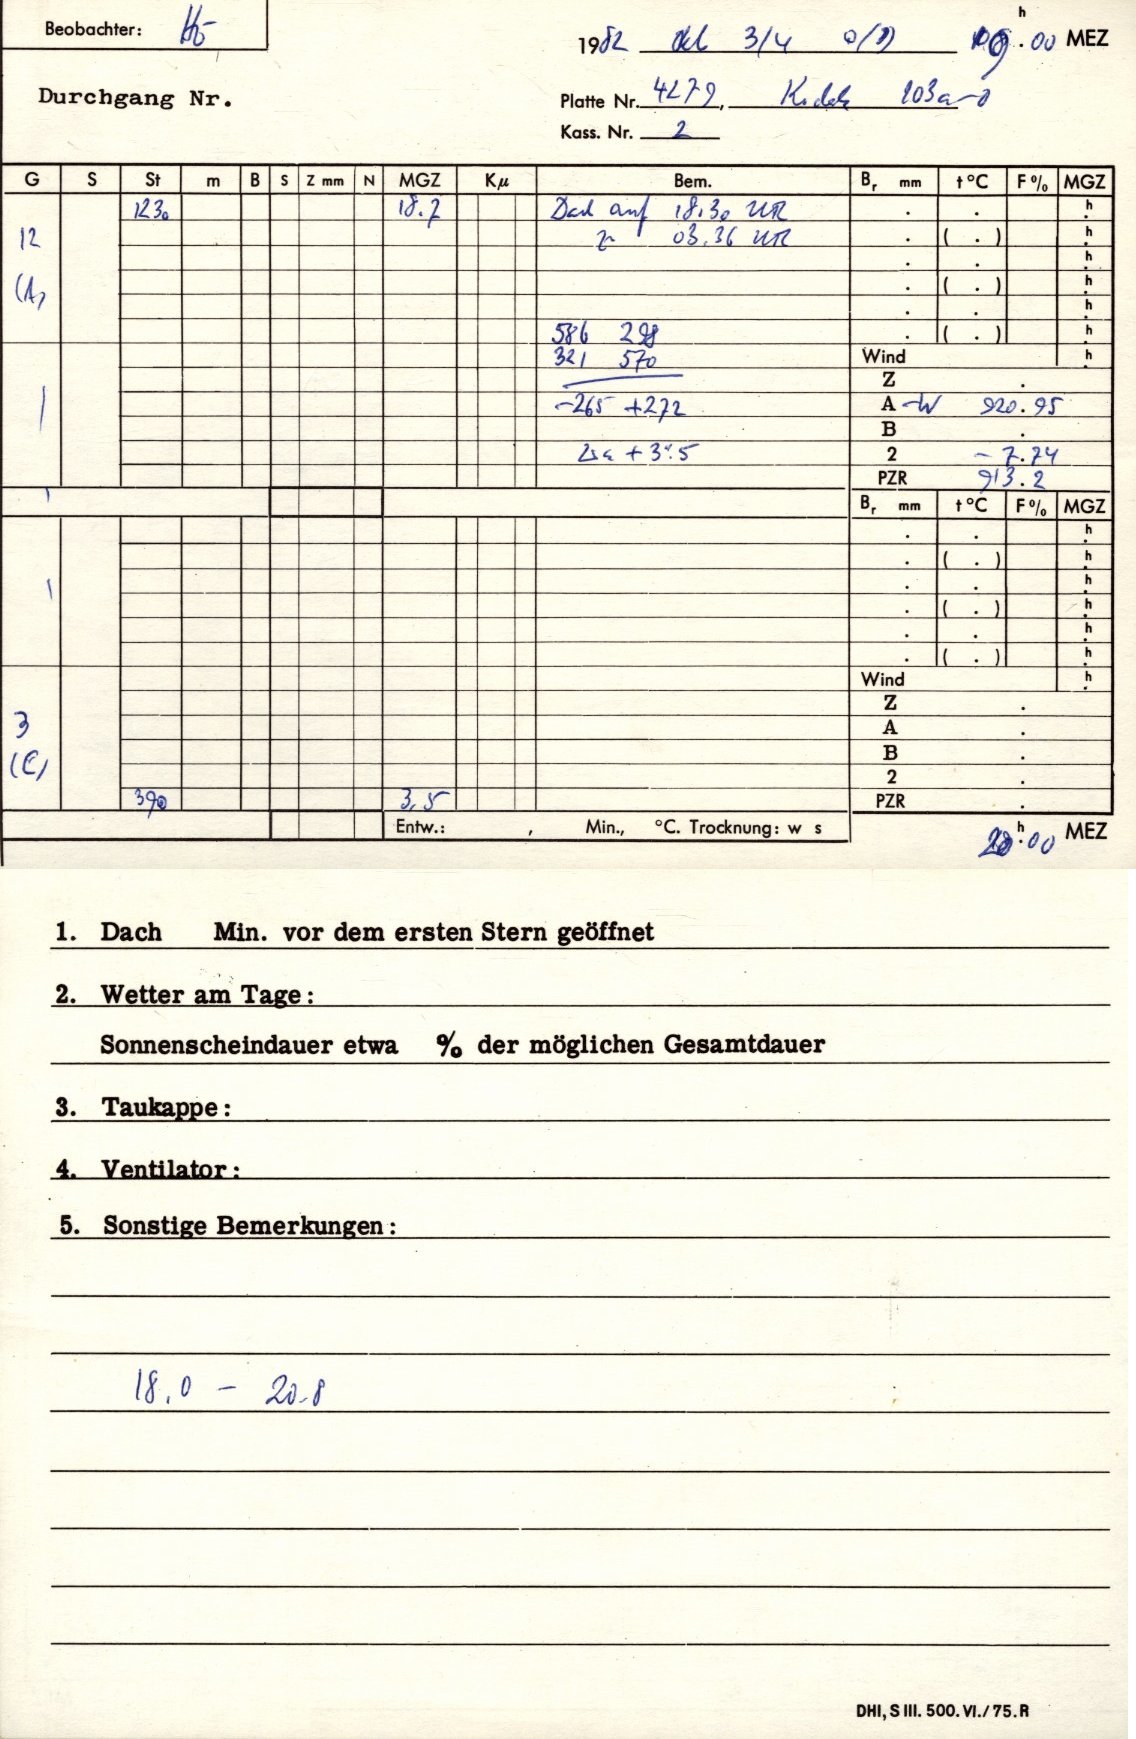 Beobachter: Hö
1982 Okt 3/4 0/1) 09 h . 00 MEZ
Durchgang Nr.
Platte Nr. 4279, Kodak 103a-0
Kass. Nr. 2
G S St m B S Z mm N MGZ Kµ Bem. Br mm t °C F % MGZ
1230 18.7 Dach auf 18.30 UR . . h
12 03.36 UR . ( . ) h
. . h
(A) . ( . ) h
. . h
586 298 . ( . ) h
321 570 Wind h
Z .
-265 +272 A -W 920.95
B .
+ 3.5 2 - 7.74
PZR 913.2
Br mm t °C F % MGZ
. . h
. ( . ) h
. . h
. ( . ) h
. . h
. ( . ) h
Wind h
Z .
3 A .
(C) B .
2 .
390 3,5 PZR .
Entw.: , Min., °C. Trocknung: w s
h . 00 MEZ
1. Dach Min. vor dem ersten Stern geöffnet
2. Wetter am Tage:
Sonnenscheindauer etwa % der möglichen Gesamtdauer
3. Taukappe:
4. Ventilator:
5. Sonstige Bemerkungen:
18.0 - 20.8
DHI, S III. 500. VI./75. R